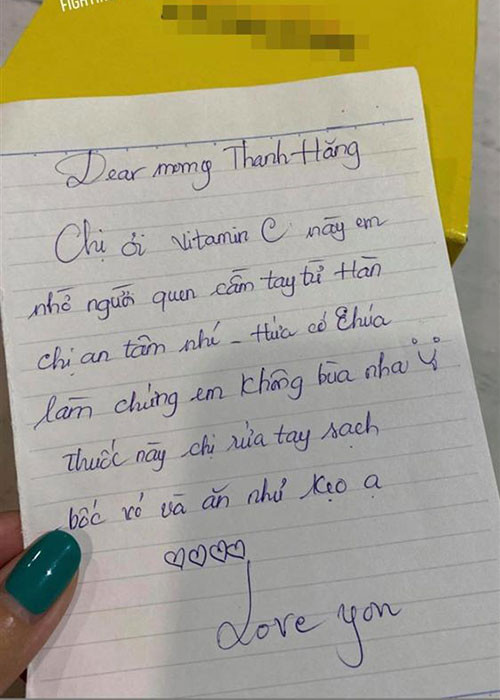 FIGHTIN
Dear mơmg Thanh Hăng
Chị ơi vitamin C này em
nhờ người quen cầm tay từ Hàn
chị an tâm nhé - Hứa có Chúa
làm chứng em không bùa nha
Thuốc này chị rửa tay sạch
bốc vỏ và ăn như kẹo ạ
Love you